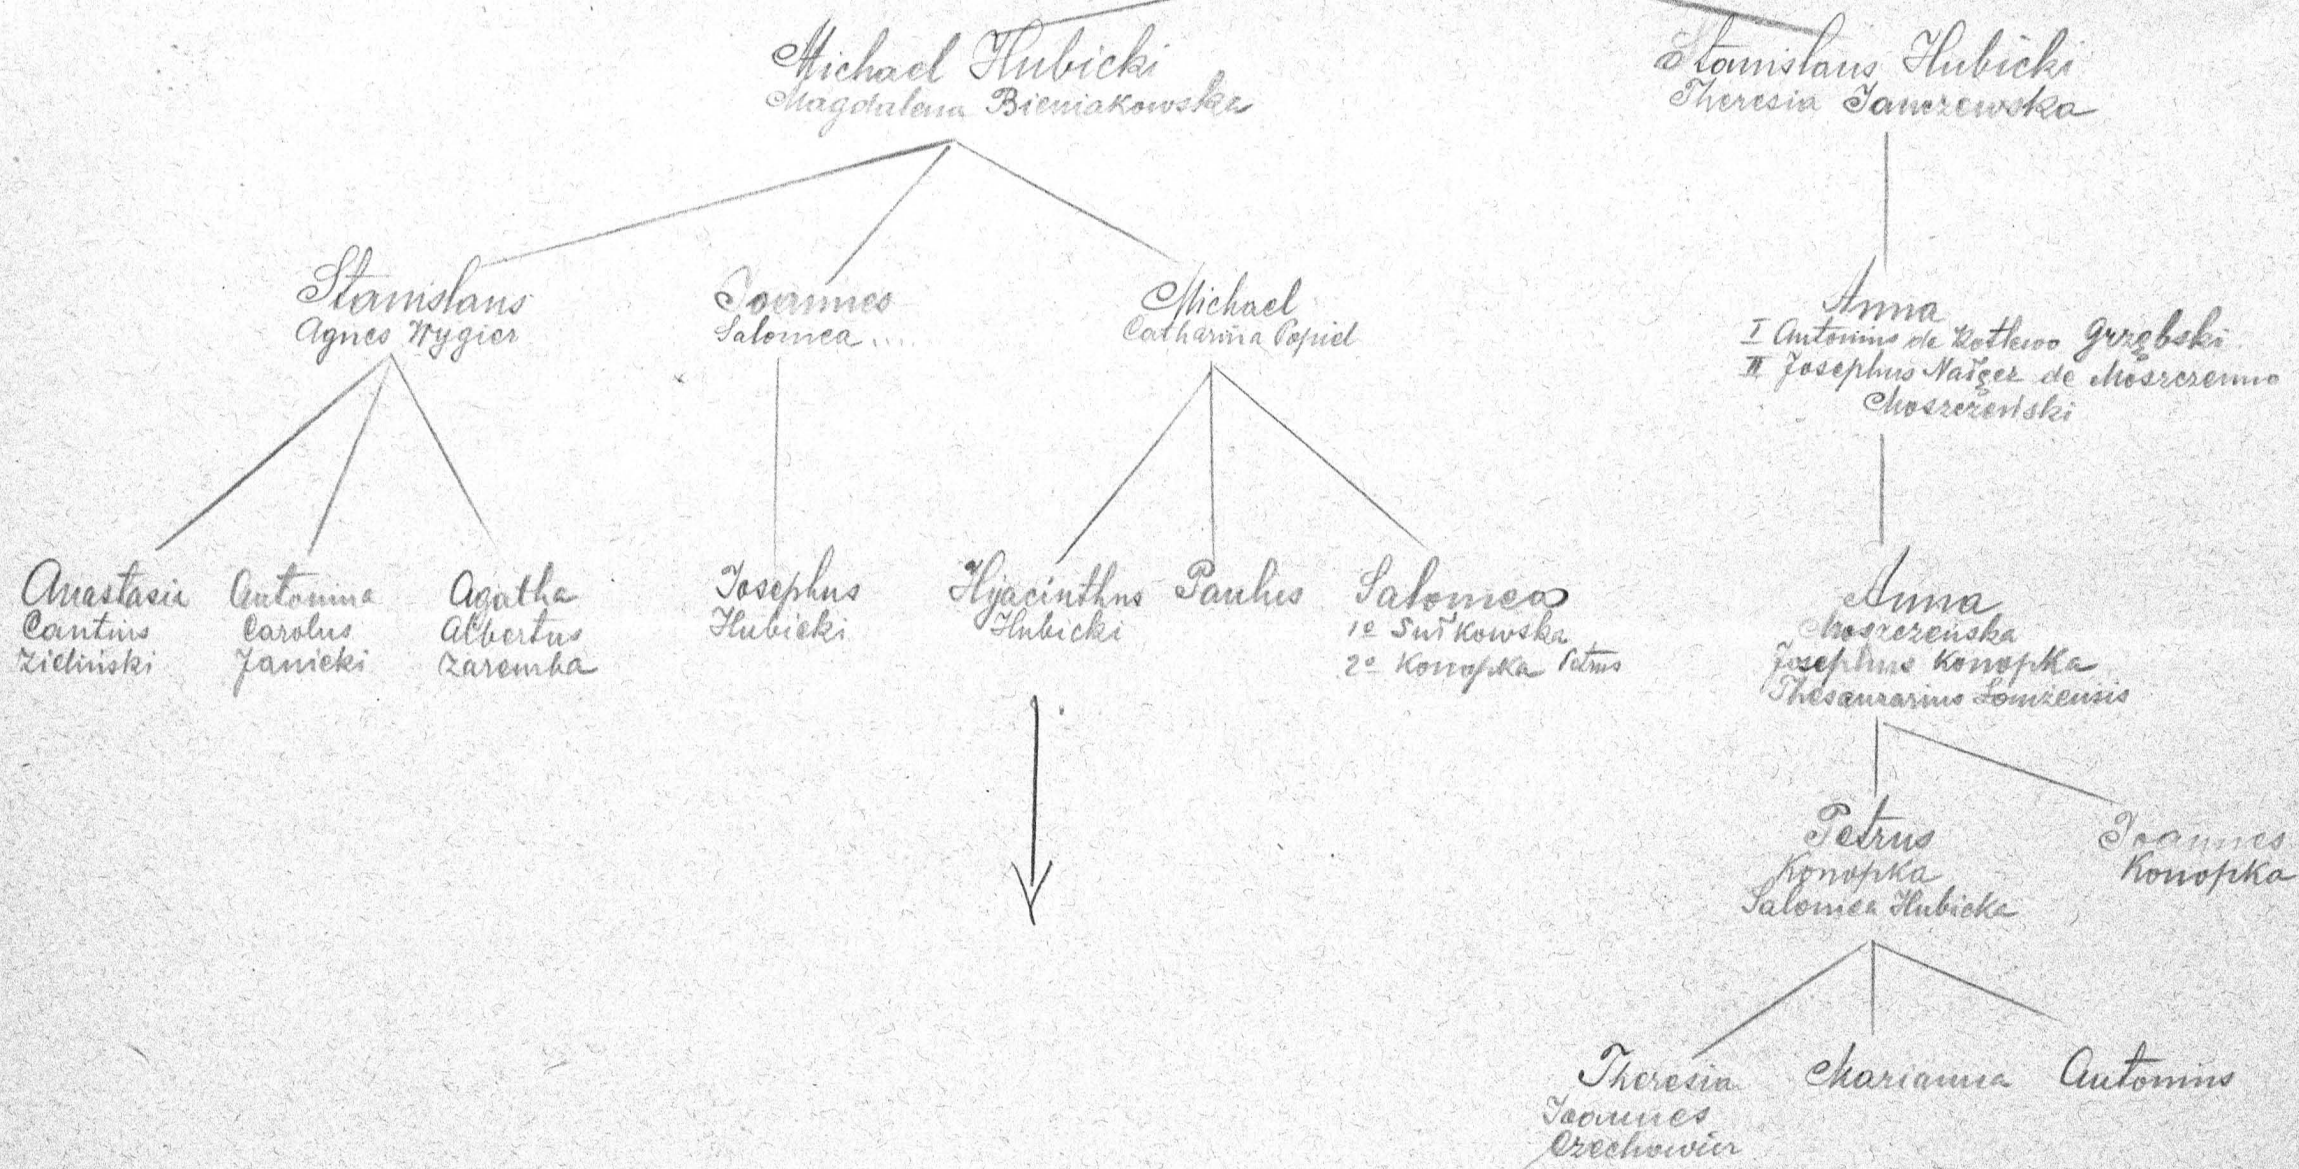 Michael Hubicki
Magdalena Bieniakowska
Stanislaus Hubicki
Theresia Janczewska
Stanislaus
Agnes Wygier
Joannes
Salomea....
Michael
Catharina Popiel
Anna
I Antonius de Kotlewo Grzębski
II Josephus Nałęcz de Moszczenno
Moszczeński
Anastasia
Cantius
Zieliński
Antonina
Carolus
Janicki
Agatha
Albertus
Zaremba
Josephus
Hubicki
Hyacinthus
Hubicki
Paulus
Salomea
1o Sutkowska
2o Konopka Petrus
Anna
Moszczeńska
Josephus Konopka
Thesaurarius Lomzensis
Petrus
Konopka
Salomea Hubicka
Joannes
Konopka
Theresia
Joannes
Czechowicz
Marianna
Antonius